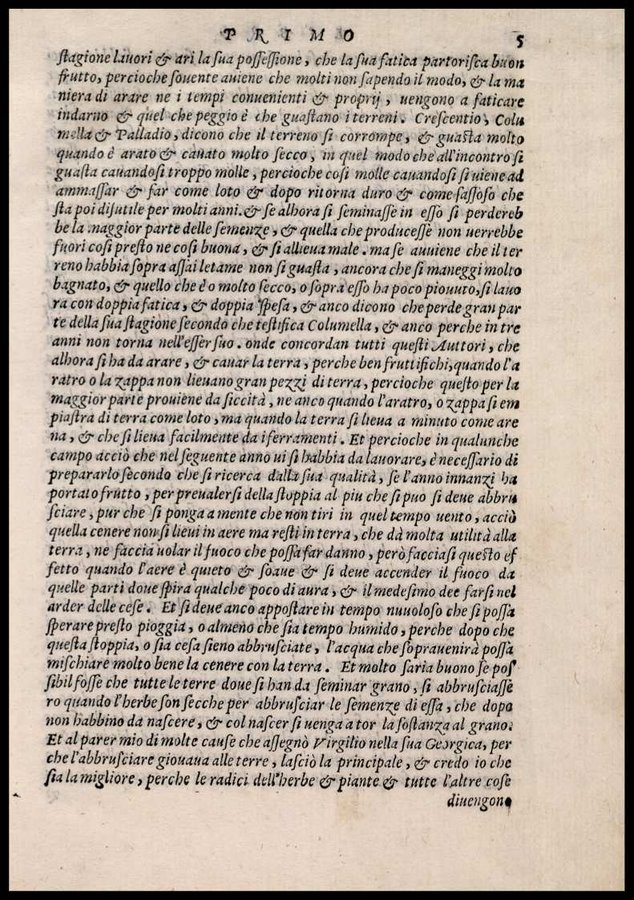 PRIMO 5
stagione lauori & ari la sua possessione, che la sua fatica partorisca buon
frutto, percioche souente auiene che molti non sapendo il modo, & la ma
niera di arare ne i tempi conuenienti & proprij, uengono a faticare
indarno & quel che peggio è che guastano i terreni. Crescentio, Colu
mella & Palladio, dicono che il terreno si corrompe, & guasta molto
quando è arato & cauato molto secco, in quel modo che all'incontro si
guasta cauandosi troppo molle, percioche cosi molle cauandosi si uiene ad
ammassar & far come loto & dopo ritorna duro & come sassoso che
sta poi disutile per molti anni. & se alhora si seminasse in esso si perdereb
be la maggior parte delle semenze, & quella che producesse non uerrebbe
fuori cosi presto ne cosi buona, & si allieua male. ma se auuiene che il ter
reno habbia sopra assai letame non si guasta, ancora che si maneggi molto
bagnato, & quello che è o molto secco, o sopra esso ha poco piouuto, si lauo
ra con doppia fatica, & doppia spesa, & anco dicono che perde gran par
te della sua stagione secondo che testifica Columella, & anco perche in tre
anni non torna nell'esser suo. onde concordan tutti questi Auttori, che
alhora si ha da arare, & cauar la terra, perche ben fruttifichi, quando l'a
ratro o la zappa non lieuano gran pezzi di terra, percioche questo per la
maggior parte prouiene da siccità, ne anco quando l'aratro, o zappa si em
piastra di terra come loto, ma quando la terra si lieua a minuto come are
na, & che si lieua facilmente da i ferramenti. Et percioche in qualunche
campo acciò che nel seguente anno ui si habbia da lauorare, è necessario di
prepararlo secondo che si ricerca dalla sua qualità, se l'anno innanzi ha
portato frutto, per preualersi della stoppia al piu che si puo si deue abbru
sciare, pur che si ponga a mente che non tiri in quel tempo uento, acciò
quella cenere non si lieui in aere ma resti in terra, che dà molta utilità alla
terra, ne faccia uolar il fuoco che possa far danno, però facciasi questo ef
fetto quando l'aere è quieto & soaue & si deue accender il fuoco da
quelle parti doue spira qualche poco di aura, & il medesimo dee farsi nel
arder delle cese. Et si deue anco appostare in tempo nuuoloso che si possa
sperare presto pioggia, o almeno che sia tempo humido, perche dopo che
questa stoppia, o sia cesa sieno abbrusciate, l'acqua che soprauenirà possa
mischiare molto bene la cenere con la terra. Et molto saria buono se pos
sibil fosse che tutte le terre doue si han da seminar grano, si abbrusciasse
ro quando l'herbe son secche per abbrusciar le semenze di essa, che dopo
non habbino da nascere, & col nascer si uenga a tor la sostanza al grano.
Et al parer mio di molte cause che assegnò Virgilio nella sua Georgica, per
che l'abbrusciare giouaua alle terre, lasciò la principale, & credo io che
sia la migliore, perche le radici dell'herbe & piante & tutte l'altre cose
diuengono